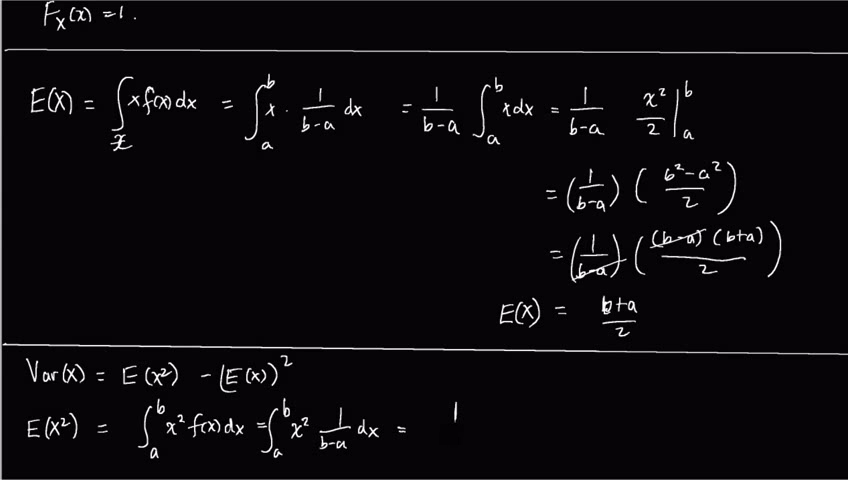 F_X(x) = 1.
E(X) = ∫_𝒳 x f(x) dx = ∫_a^b x · 1/(b-a) dx = 1/(b-a) ∫_a^b x dx = 1/(b-a) x²/2 |_a^b
= (1/(b-a)) ((b²-a²)/2)
= (1/(b-a)) ((b-a)(b+a)/2)
E(X) = (b+a)/2
Var(X) = E(X²) - (E(X))²
E(X²) = ∫_a^b x² f(x) dx = ∫_a^b x² 1/(b-a) dx = 1